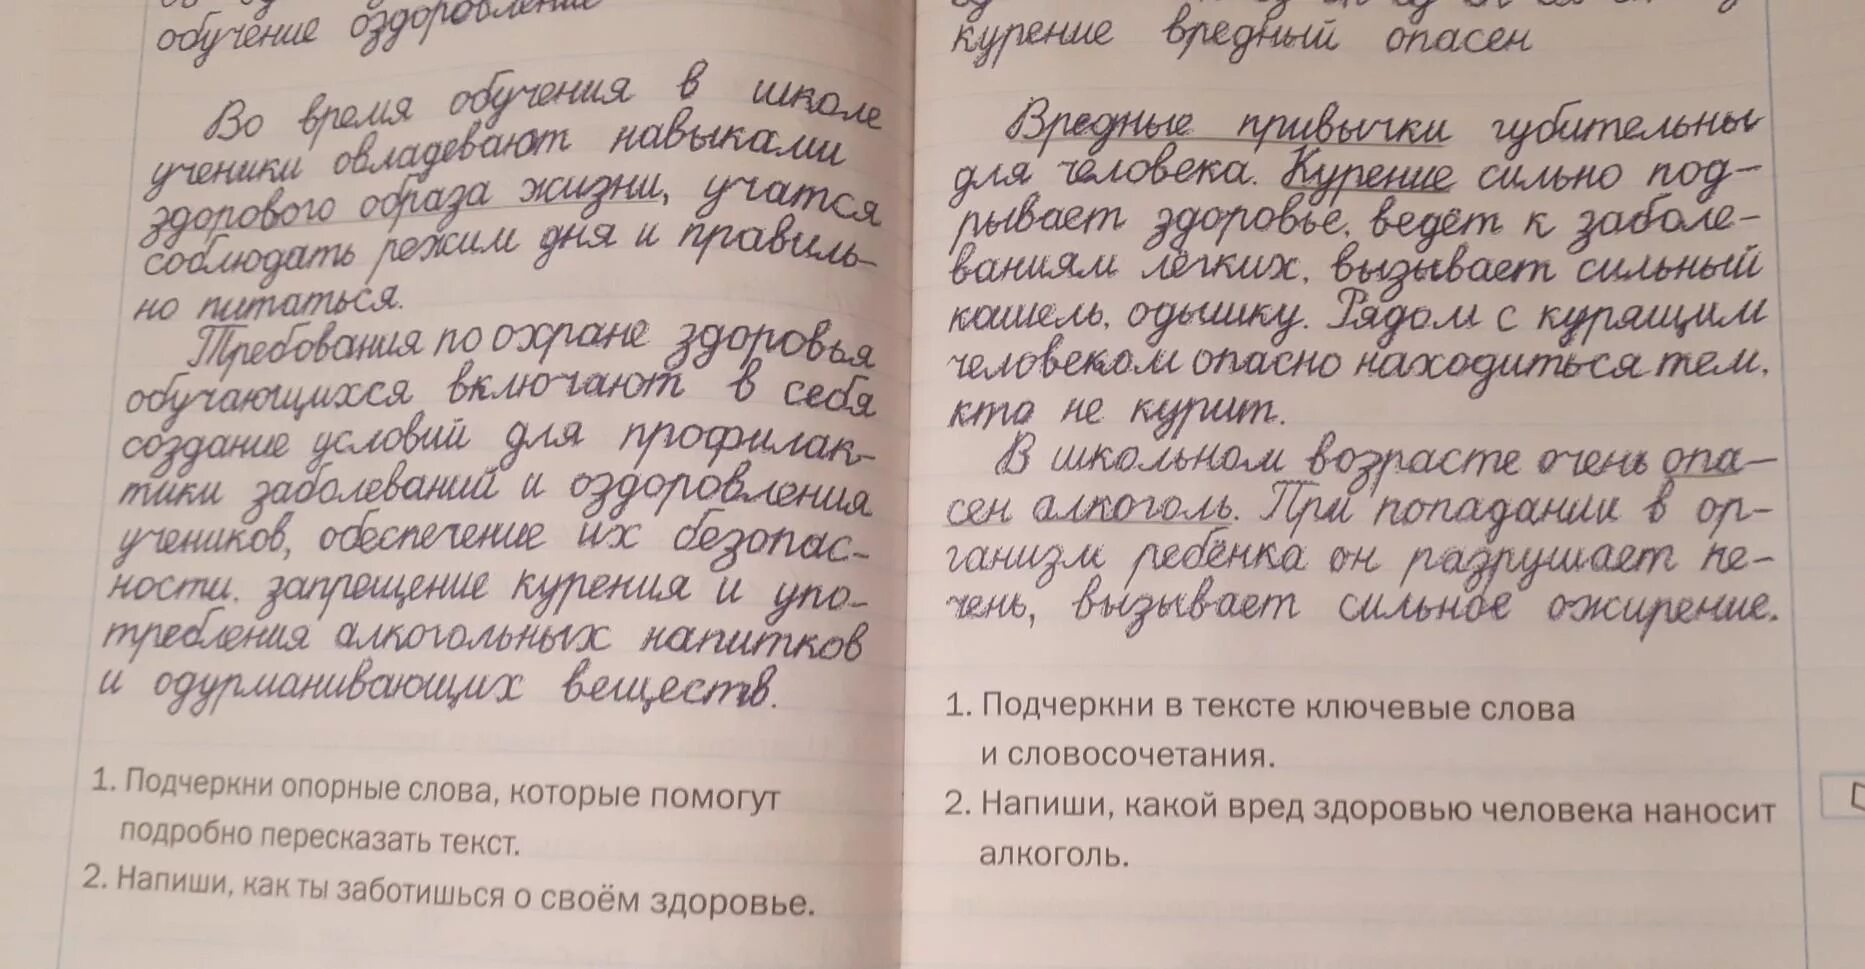 обучение оздоровление
Во время обучения в школе
ученики овладевают навыками
здорового образа жизни, учатся
соблюдать режим дня и правиль-
но питаться.
Требования по охране здоровья
обучающихся включают в себя
создание условий для профилак-
тики заболеваний и оздоровления
учеников, обеспечение их безопас-
ности, запрещение курения и упо-
требления алкогольных напитков
и одурманивающих веществ.
1. Подчеркни опорные слова, которые помогут
подробно пересказать текст.
2. Напиши, как ты заботишься о своём здоровье.
курение вредный опасен
Вредные привычки губительны
для человека. Курение сильно под-
рывает здоровье, ведёт к заболе-
ваниям лёгких, вызывает сильный
кашель, одышку. Рядом с курящим
человеком опасно находиться тем,
кто не курит.
В школьном возрасте очень опа-
сен алкоголь. При попадании в ор-
ганизм ребёнка он разрушает пе-
чень, вызывает сильное ожирение.
1. Подчеркни в тексте ключевые слова
и словосочетания.
2. Напиши, какой вред здоровью человека наносит
алкоголь.